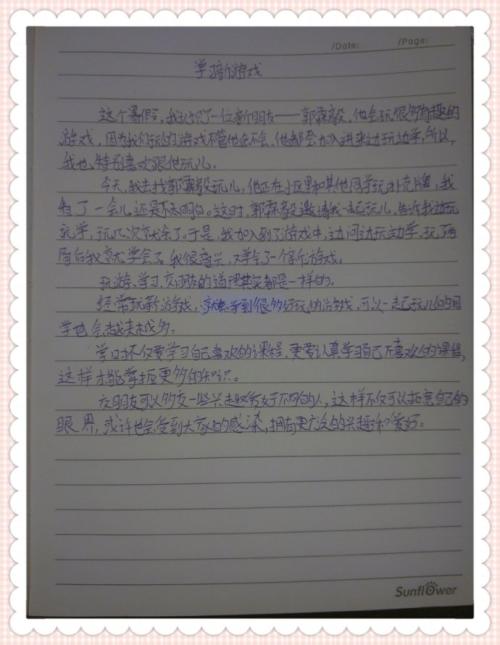 /Date: /Page:
学新游戏
这个暑假，我认识了一位新朋友——郭霖毅，他会玩很多有趣的
游戏，因为我们玩的游戏不管他会不会，他都会加入进来边玩边学，所以，
我也特别喜欢跟他玩儿。
今天，我去找郭霖毅玩儿，他正在小区里和其他同学玩扑克牌，我
看了一会儿，还是不太明白。这时，郭霖毅邀请我一起玩儿，告诉我边玩
边学，玩几次就会了，于是，我加入到了游戏中，边问边玩边学，玩两
局后我就学会了，我很高兴，又学会了一个新游戏。
玩游、学习、交朋友的道理其实都是一样的。
经常玩新游戏，就能学到很多好玩的游戏，可以一起玩儿的同
学也会越来越多。
学习不仅要学习自己喜欢的课程，更要认真学习自己不喜欢的课程，
这样才能掌握更多的知识。
交朋友可以多交一些兴趣爱好不同的人，这样不仅可以拓宽自己的
眼界，或许也会受到大家的感染，拥有更广泛的兴趣和爱好。
Sunflower